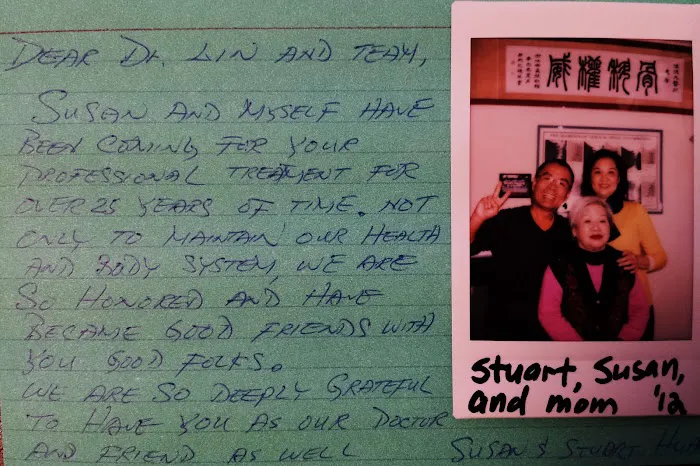 DEAR DR. LIN AND TEAM,
SUSAN AND MYSELF HAVE
BEEN COMING FOR YOUR
PROFESSIONAL TREATMENT FOR
OVER 25 YEARS OF TIME. NOT
ONLY TO MAINTAIN OUR HEALTH
AND BODY SYSTEM, WE ARE
SO HONORED AND HAVE
BECAME GOOD FRIENDS WITH
YOU GOOD FOLKS.
WE ARE SO DEEPLY GRATEFUL
TO HAVE YOU AS OUR DOCTOR
AND FRIEND AS WELL
SUSAN & STUART
威權
Stuart, Susan,
and mom '12